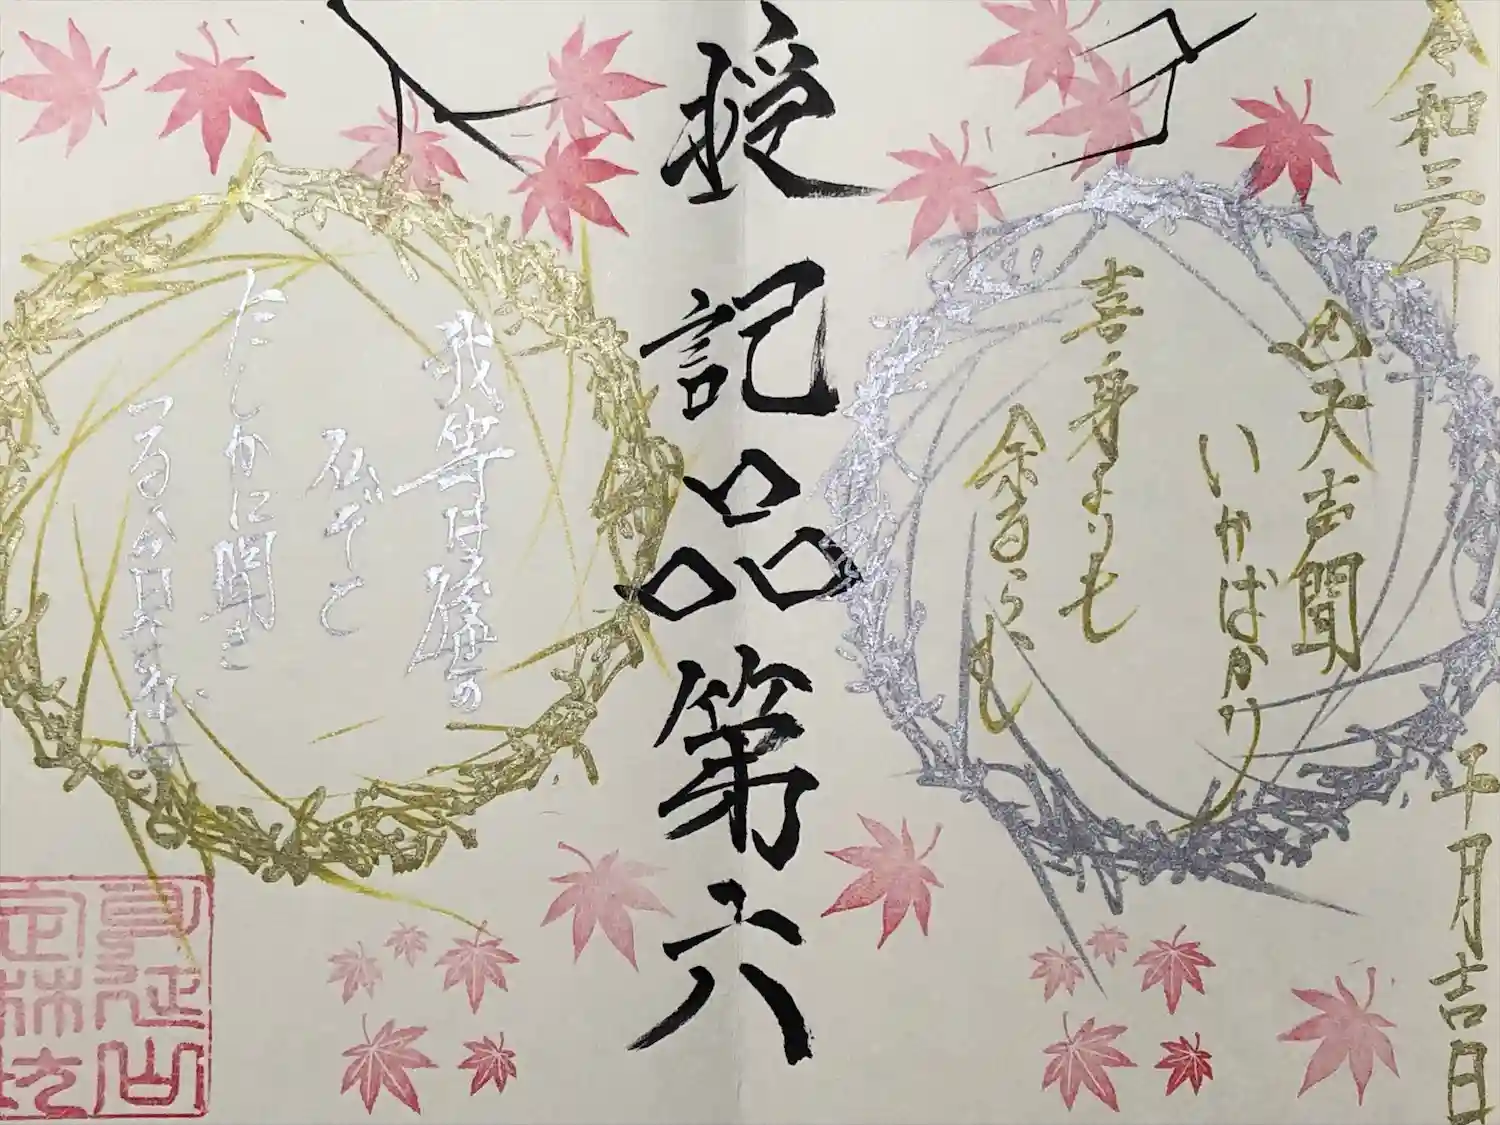 令和三年
十月吉日
四大声聞
いかばかり
喜身よりも
余るらむ
授記品第六
我等は後世の
仏ぞと
たしかに聞き
つる今日なれば
身延山
定林坊